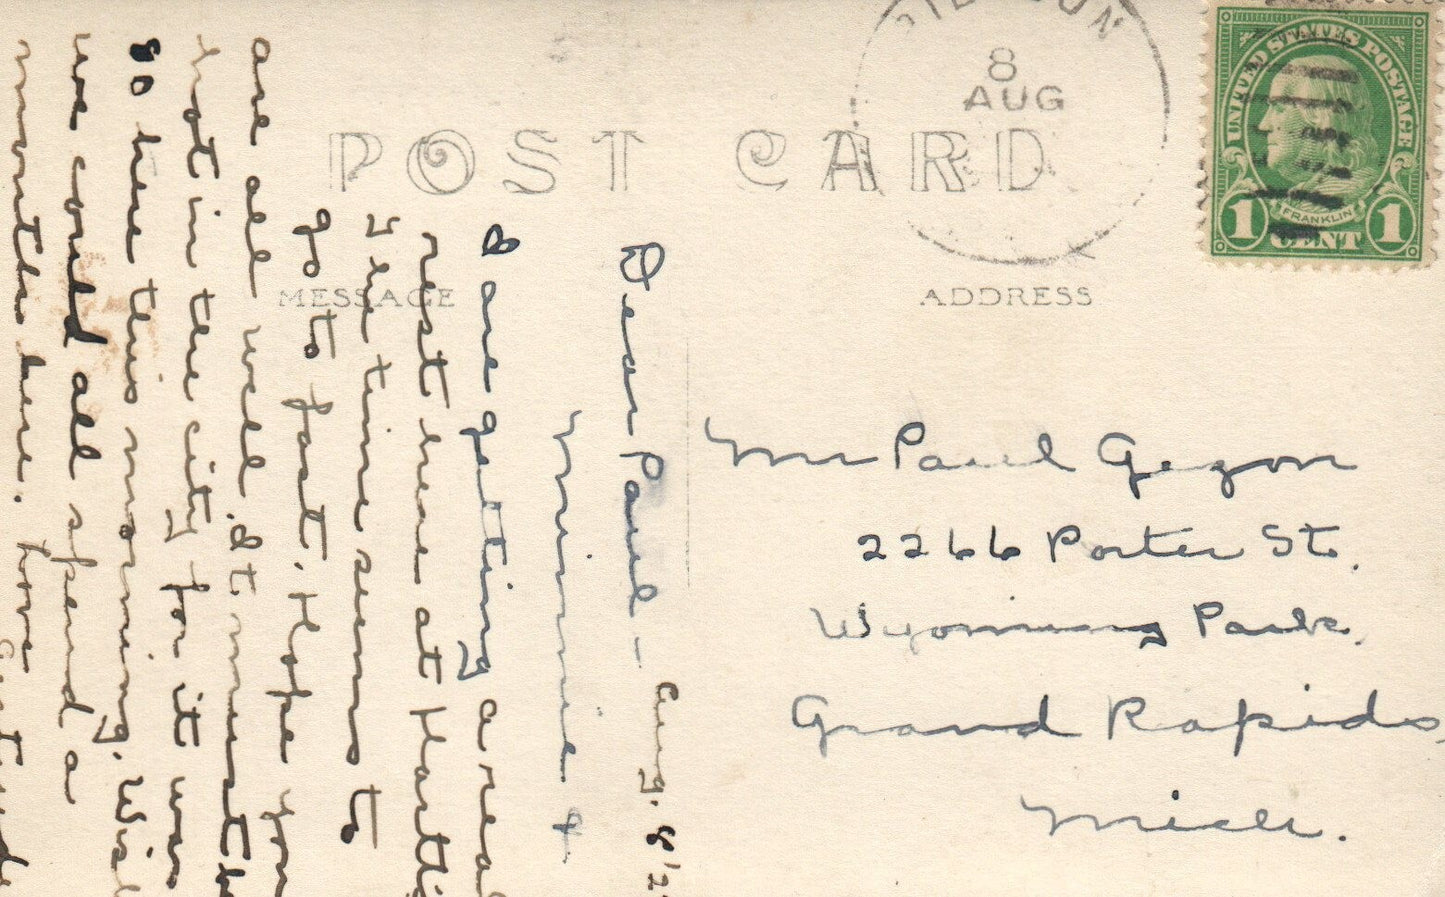 8
AUG
UNITED STATES POSTAGE
FRANKLIN
1 CENT 1
POST CARD
MESSAGE
ADDRESS
Aug. 8 '2
Dear Paul –
Minnie &
I are getting a real
rest here at Hartt
the time seems to
go to fast. Hope you
are all well. It must b
hot in the city for it was
80 here this morning. Wis
we could all spend a
month here. Love
Gertrude
Mr Paul Gezon
2266 Porter St.
Wyoming Park.
Grand Rapids,
Mich.